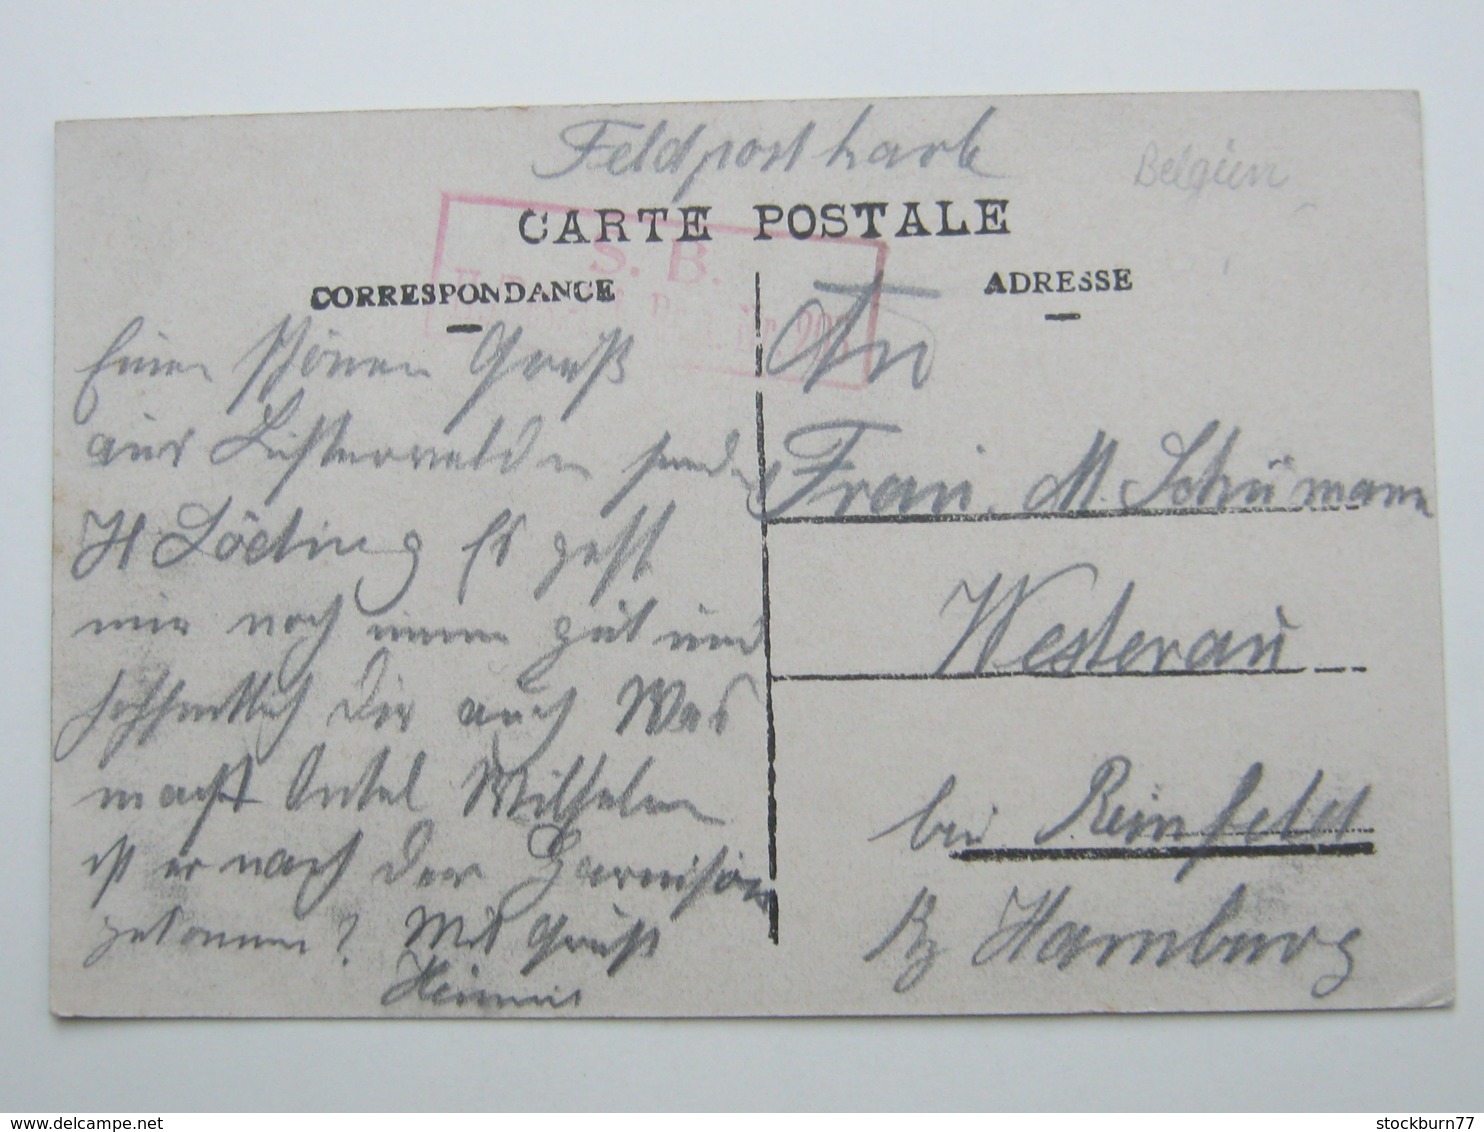 Feldpostkarte
Belgien
CARTE POSTALE
S. B.
CORRESPONDANCE
ADRESSE
Einen schönen Gruß
aus sendet
H Löding Es geht
mir noch immer gut und
hoffentlich Dir auch Was
macht Onkel Wilhelm
ist er nach der Garnison
gekommen? Mit Gruß
An
Frau M. Schümann
Westerau
bei Reinfeld
Bz Hamburg
stockburn77